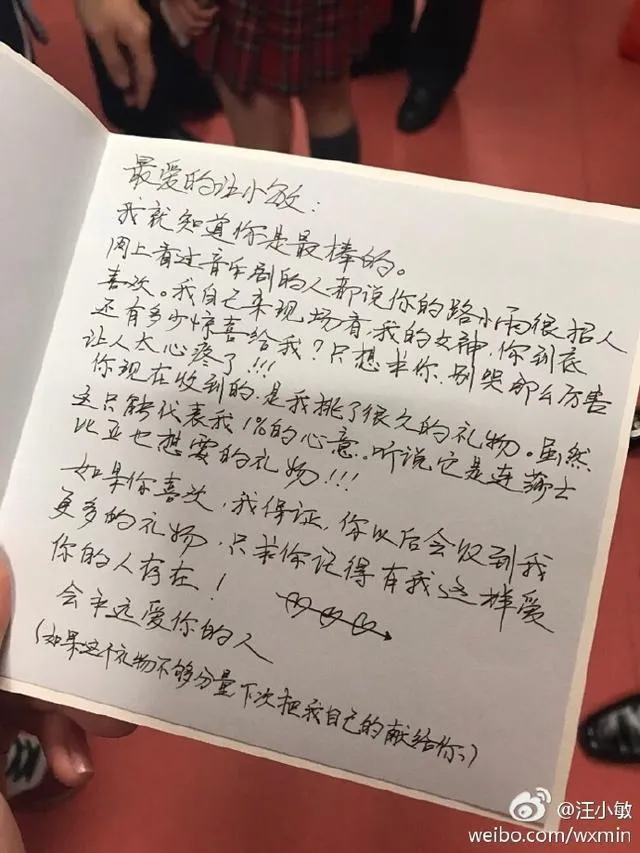 最爱的汪小敏：
我就知道你是最棒的。
网上看过音乐剧的人都说你的路小雨很招人
喜欢。我自己来现场看，我的女神，你到底
还有多少惊喜给我？只想求你，别哭那么厉害
让人太心疼了！！！
你现在收到的，是我挑了很久的礼物。虽然
这只能代表我1%的心意。听说它是连莎士
比亚也想要的礼物！！！
如果你喜欢，我保证，你以后会收到我
更多的礼物，只求你记得有我这样爱
你的人存在！
会永远爱你的人
（如果这个礼物不够分量下次把我自己的献给你）
@汪小敏
weibo.com/wxmin